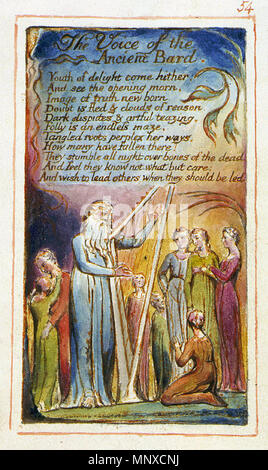 54
The Voice of the
Ancient Bard.
Youth of delight come hither:
And see the opening morn,
Image of truth new born
Doubt is fled & clouds of reason
Dark disputes & artful teazing.
Folly is an endless maze,
Tangled roots perplex her ways,
How many have fallen there!
They stumble all night over bones of the dead
And feel they know not what but care
And wish to lead others when they should be led
alamy
Image ID: MNXCNJ
www.alamy.com